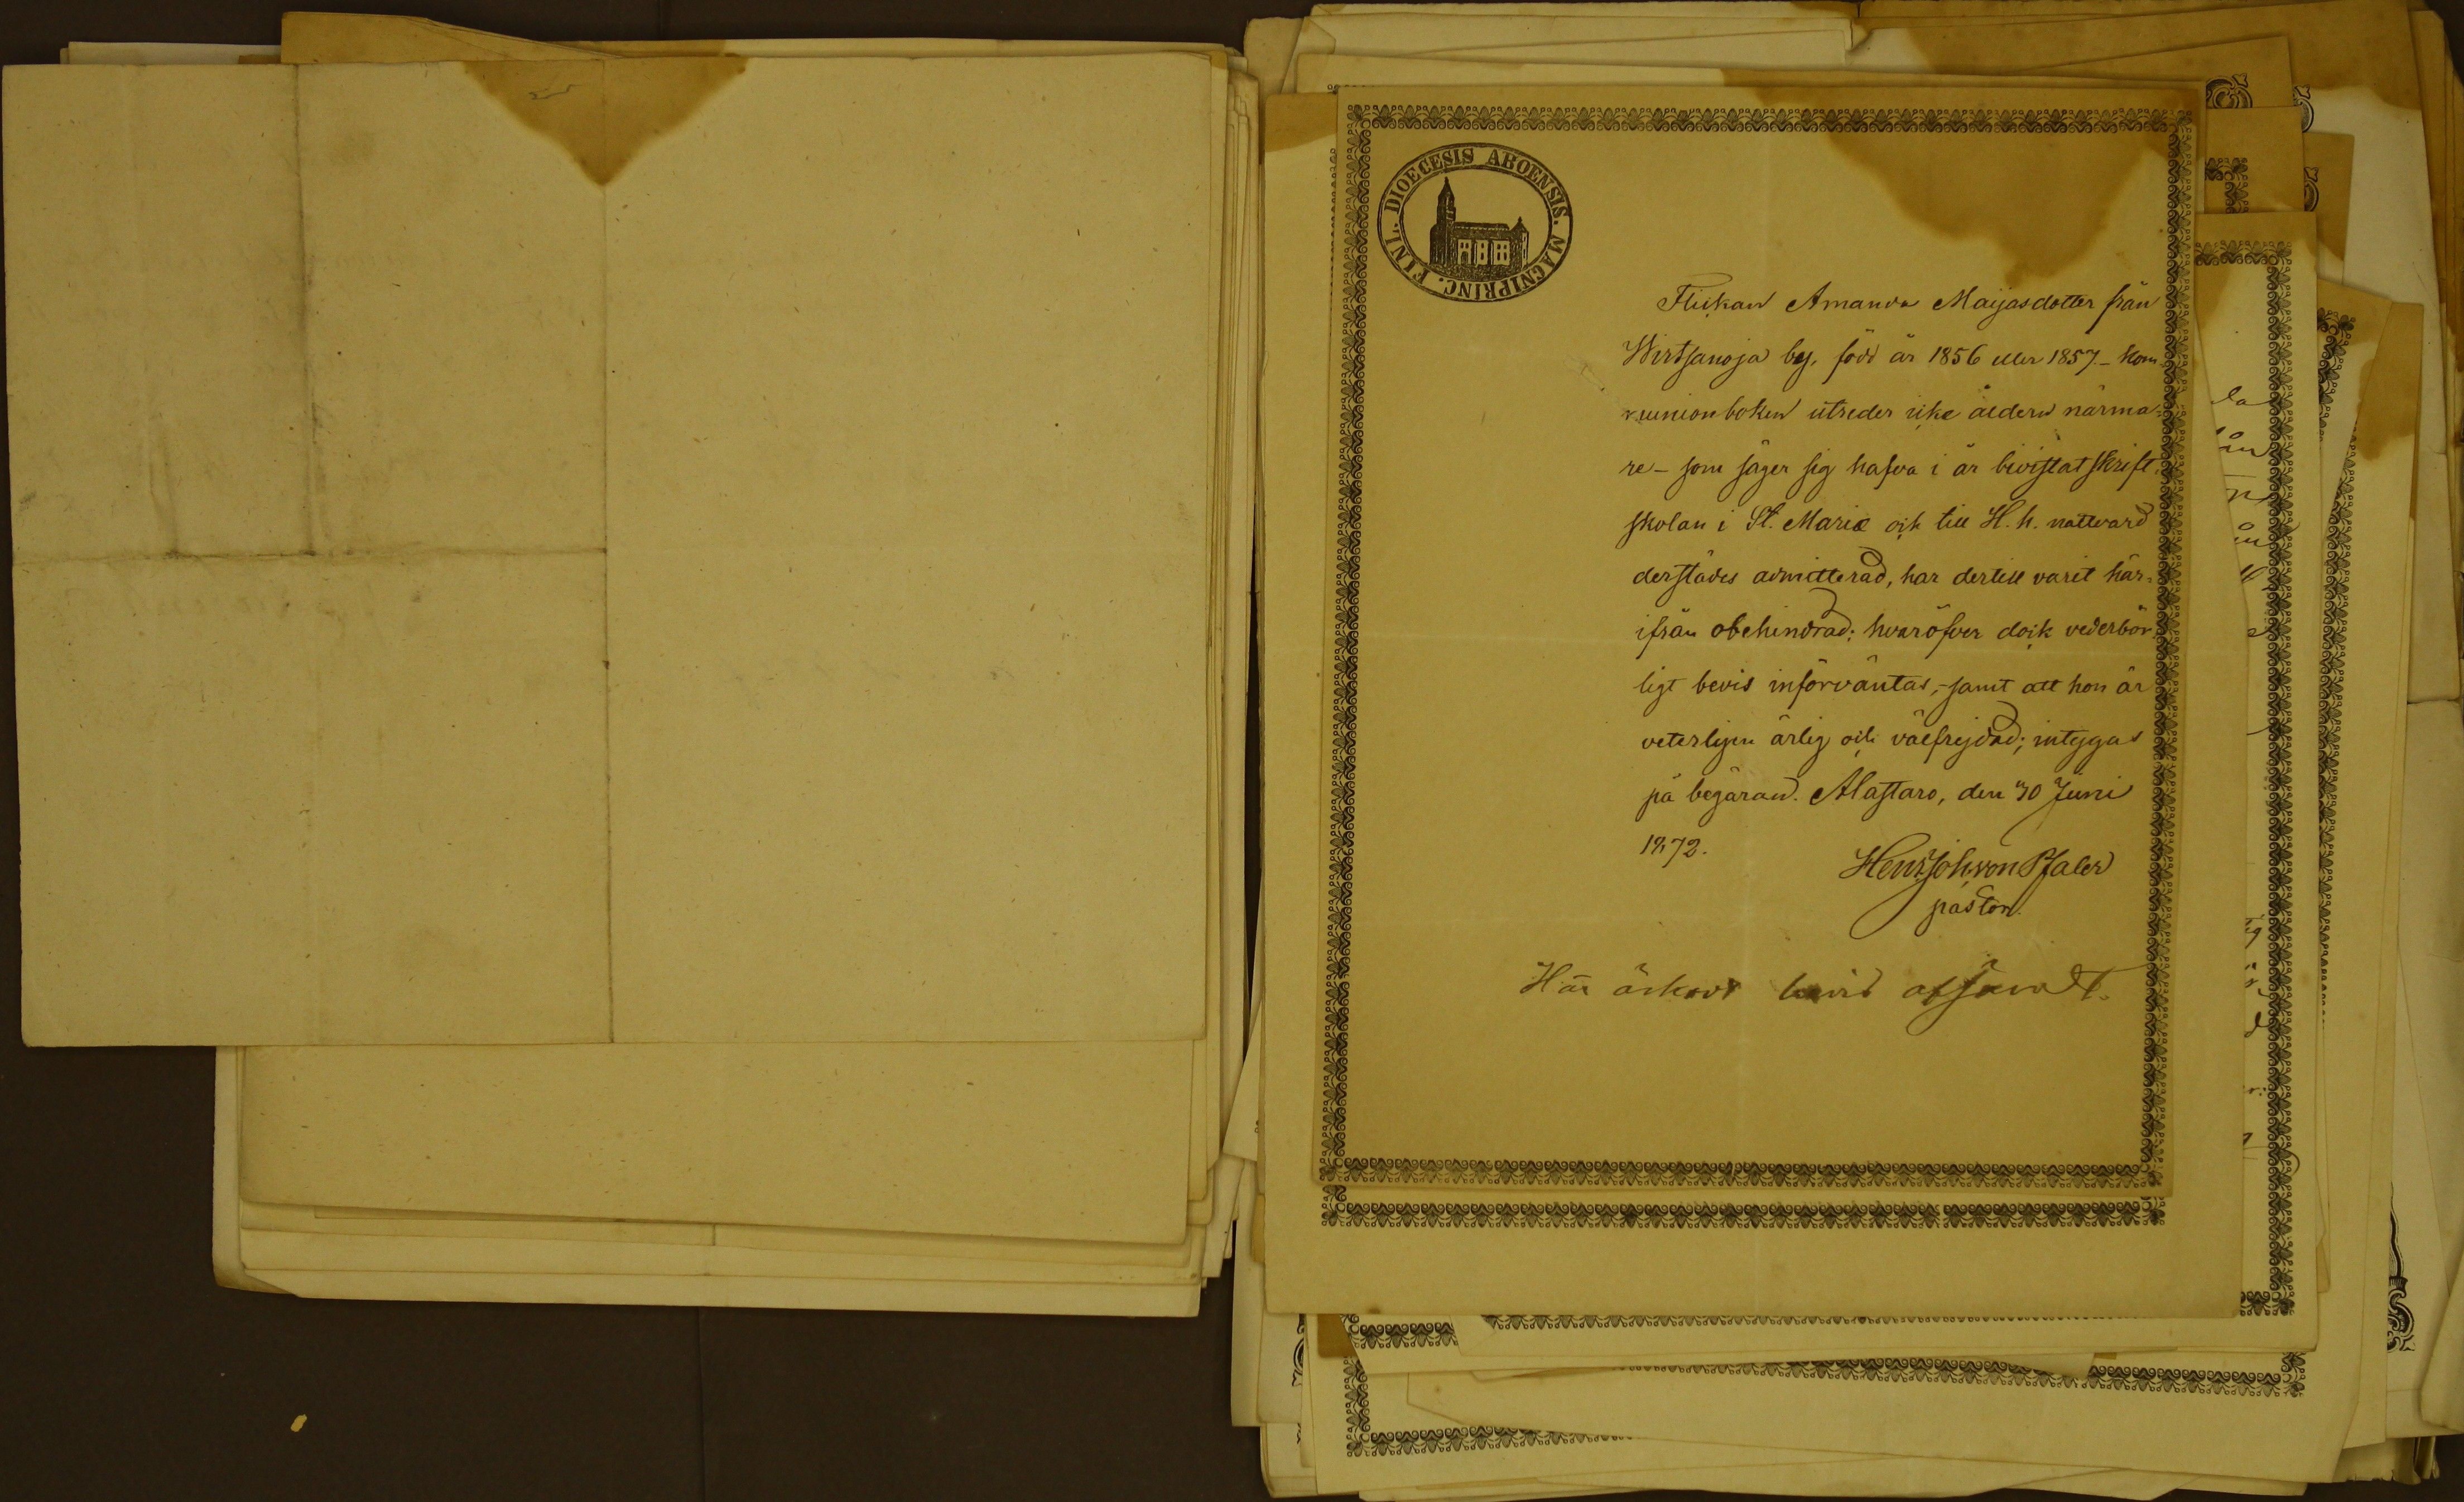 DIOECESIS ABOENSIS. MAGNIPRINC. FINL.
Flickan Amanda Maijasdotter från
Wirtsanoja by, född år 1856 eller 1857 – kom-
munionboken utreder icke åldern närma-
re – som säger sig hafva i år bivistat skrift-
skolan i St. Mariæ och till H. h. nattvard
derstädes admitterad, har dertill varit här-
ifrån obehindrad; hvaröfver dock vederbör-
ligt bevis införväntas, – samt att hon är
veterligen ärlig och välfrejdad; intygas
på begäran. Alastaro, den 30 Juni
1872.
Henr Joh. von Pfaler
pastor.
Här bevis afsändt.